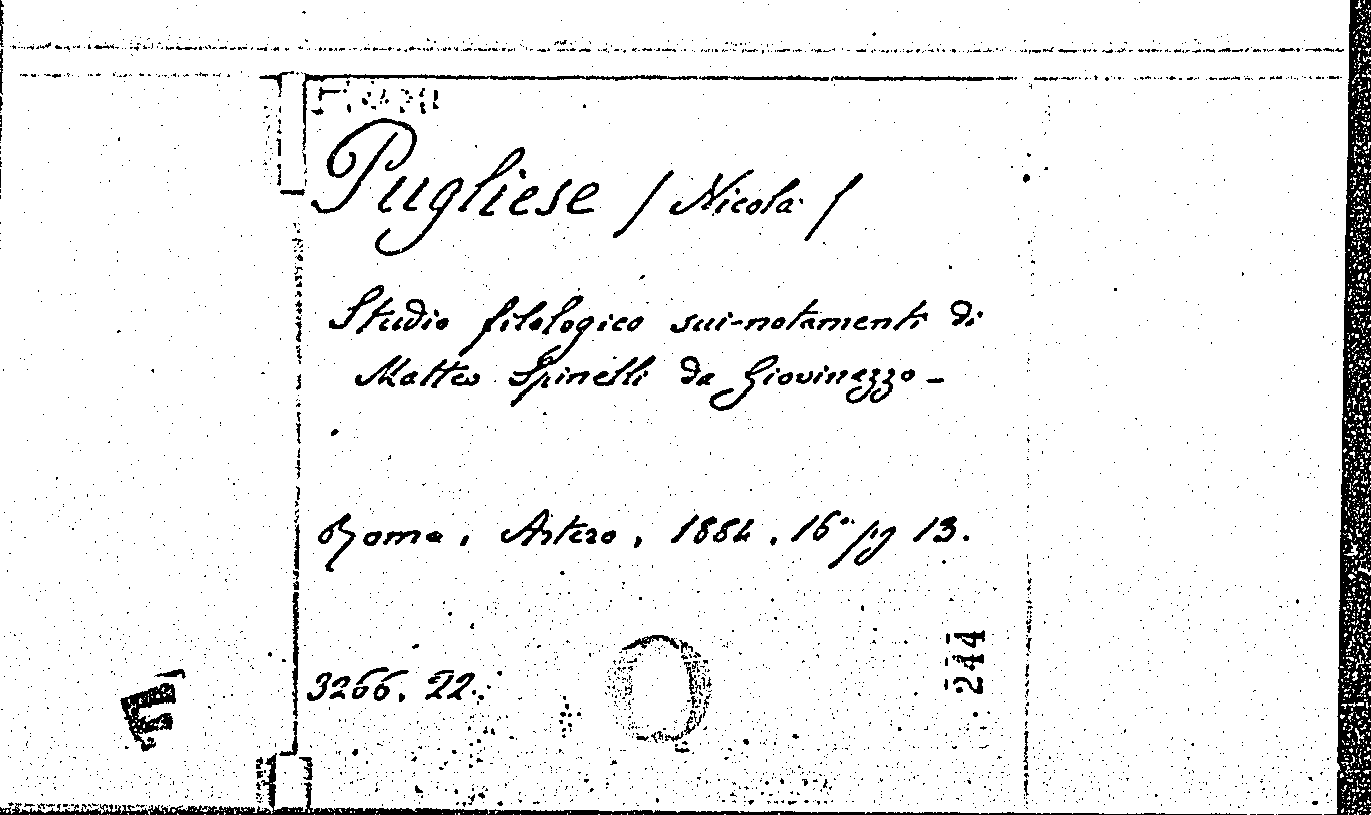 Pugliese / Nicola /
Studio filologico sui notamenti di
Matteo Spinelli da Giovinazzo -
Roma, Artero, 1884, 16° pg 13.
3266. 22.
244
E